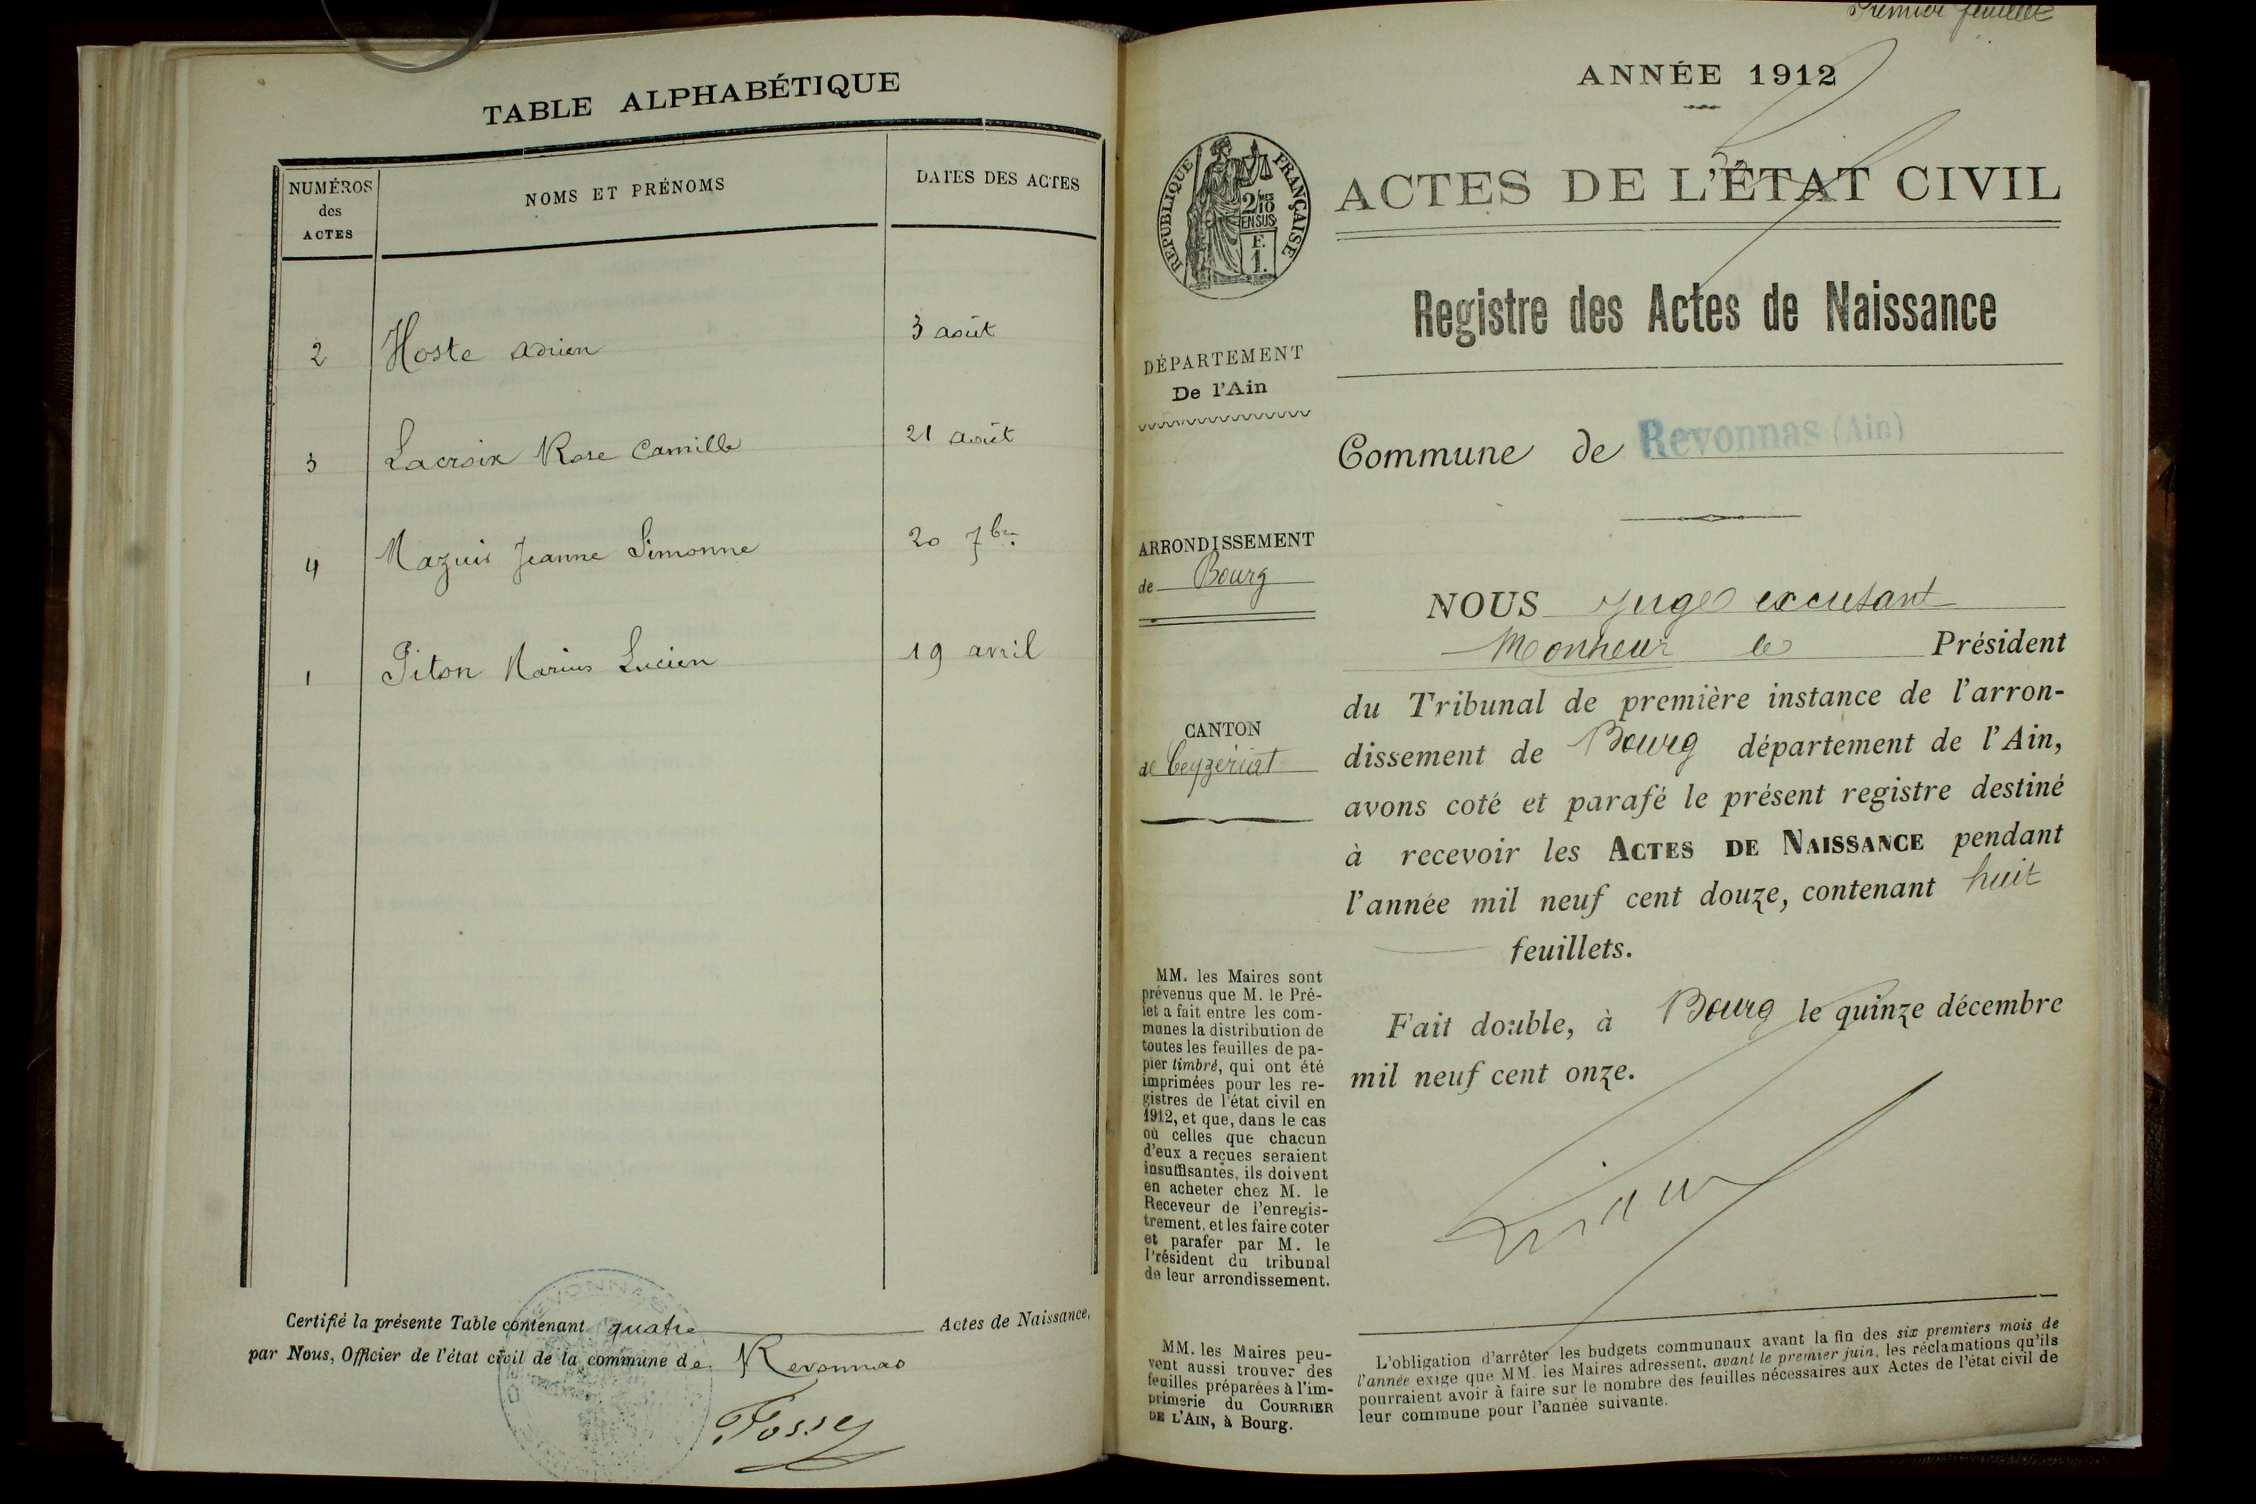 TABLE ALPHABÉTIQUE
NUMÉROS
des
ACTES
NOMS ET PRÉNOMS
DATES DES ACTES
2 Hoste Adrien 3 août
3 Lacroix Rose Camille 21 août
4 Mazuis Jeanne Simonne 20 7bre
1 Piton Marius Lucien 19 avril
Certifié la présente Table contenant quatre Actes de Naissance,
par Nous, Officier de l'état civil de la commune de Revonnas
Fossey
Premier feuillet
ANNÉE 1912
ACTES DE L'ÉTAT CIVIL
RÉPUBLIQUE FRANÇAISE
2/10
EN SUS
F.
1.
Registre des Actes de Naissance
DÉPARTEMENT
De l'Ain
Commune de Revonnas (Ain)
ARRONDISSEMENT
de Bourg
CANTON
de Ceyzériat
NOUS Juge excusant
Monsieur le Président
du Tribunal de première instance de l'arron-
dissement de Bourg département de l'Ain,
avons coté et parafé le présent registre destiné
à recevoir les ACTES DE NAISSANCE pendant
l'année mil neuf cent douze, contenant huit
feuillets.
Fait double, à Bourg le quinze décembre
mil neuf cent onze.
MM. les Maires sont
prévenus que M. le Pré-
fet a fait entre les com-
munes la distribution de
toutes les feuilles de pa-
pier timbré, qui ont été
imprimées pour les re-
gistres de l'état civil en
1912, et que, dans le cas
où celles que chacun
d'eux a reçues seraient
insuffisantes, ils doivent
en acheter chez M. le
Receveur de l'enregis-
trement, et les faire coter
et parafer par M. le
Président du tribunal
de leur arrondissement.
MM. les Maires peu-
vent aussi trouver des
feuilles préparées à l'im-
primerie du COURRIER
DE L'AIN, à Bourg.
L'obligation d'arrêter les budgets communaux avant la fin des six premiers mois de
l'année exige que MM. les Maires adressent, avant le premier juin, les réclamations qu'ils
pourraient avoir à faire sur le nombre des feuilles nécessaires aux Actes de l'état civil de
leur commune pour l'année suivante.